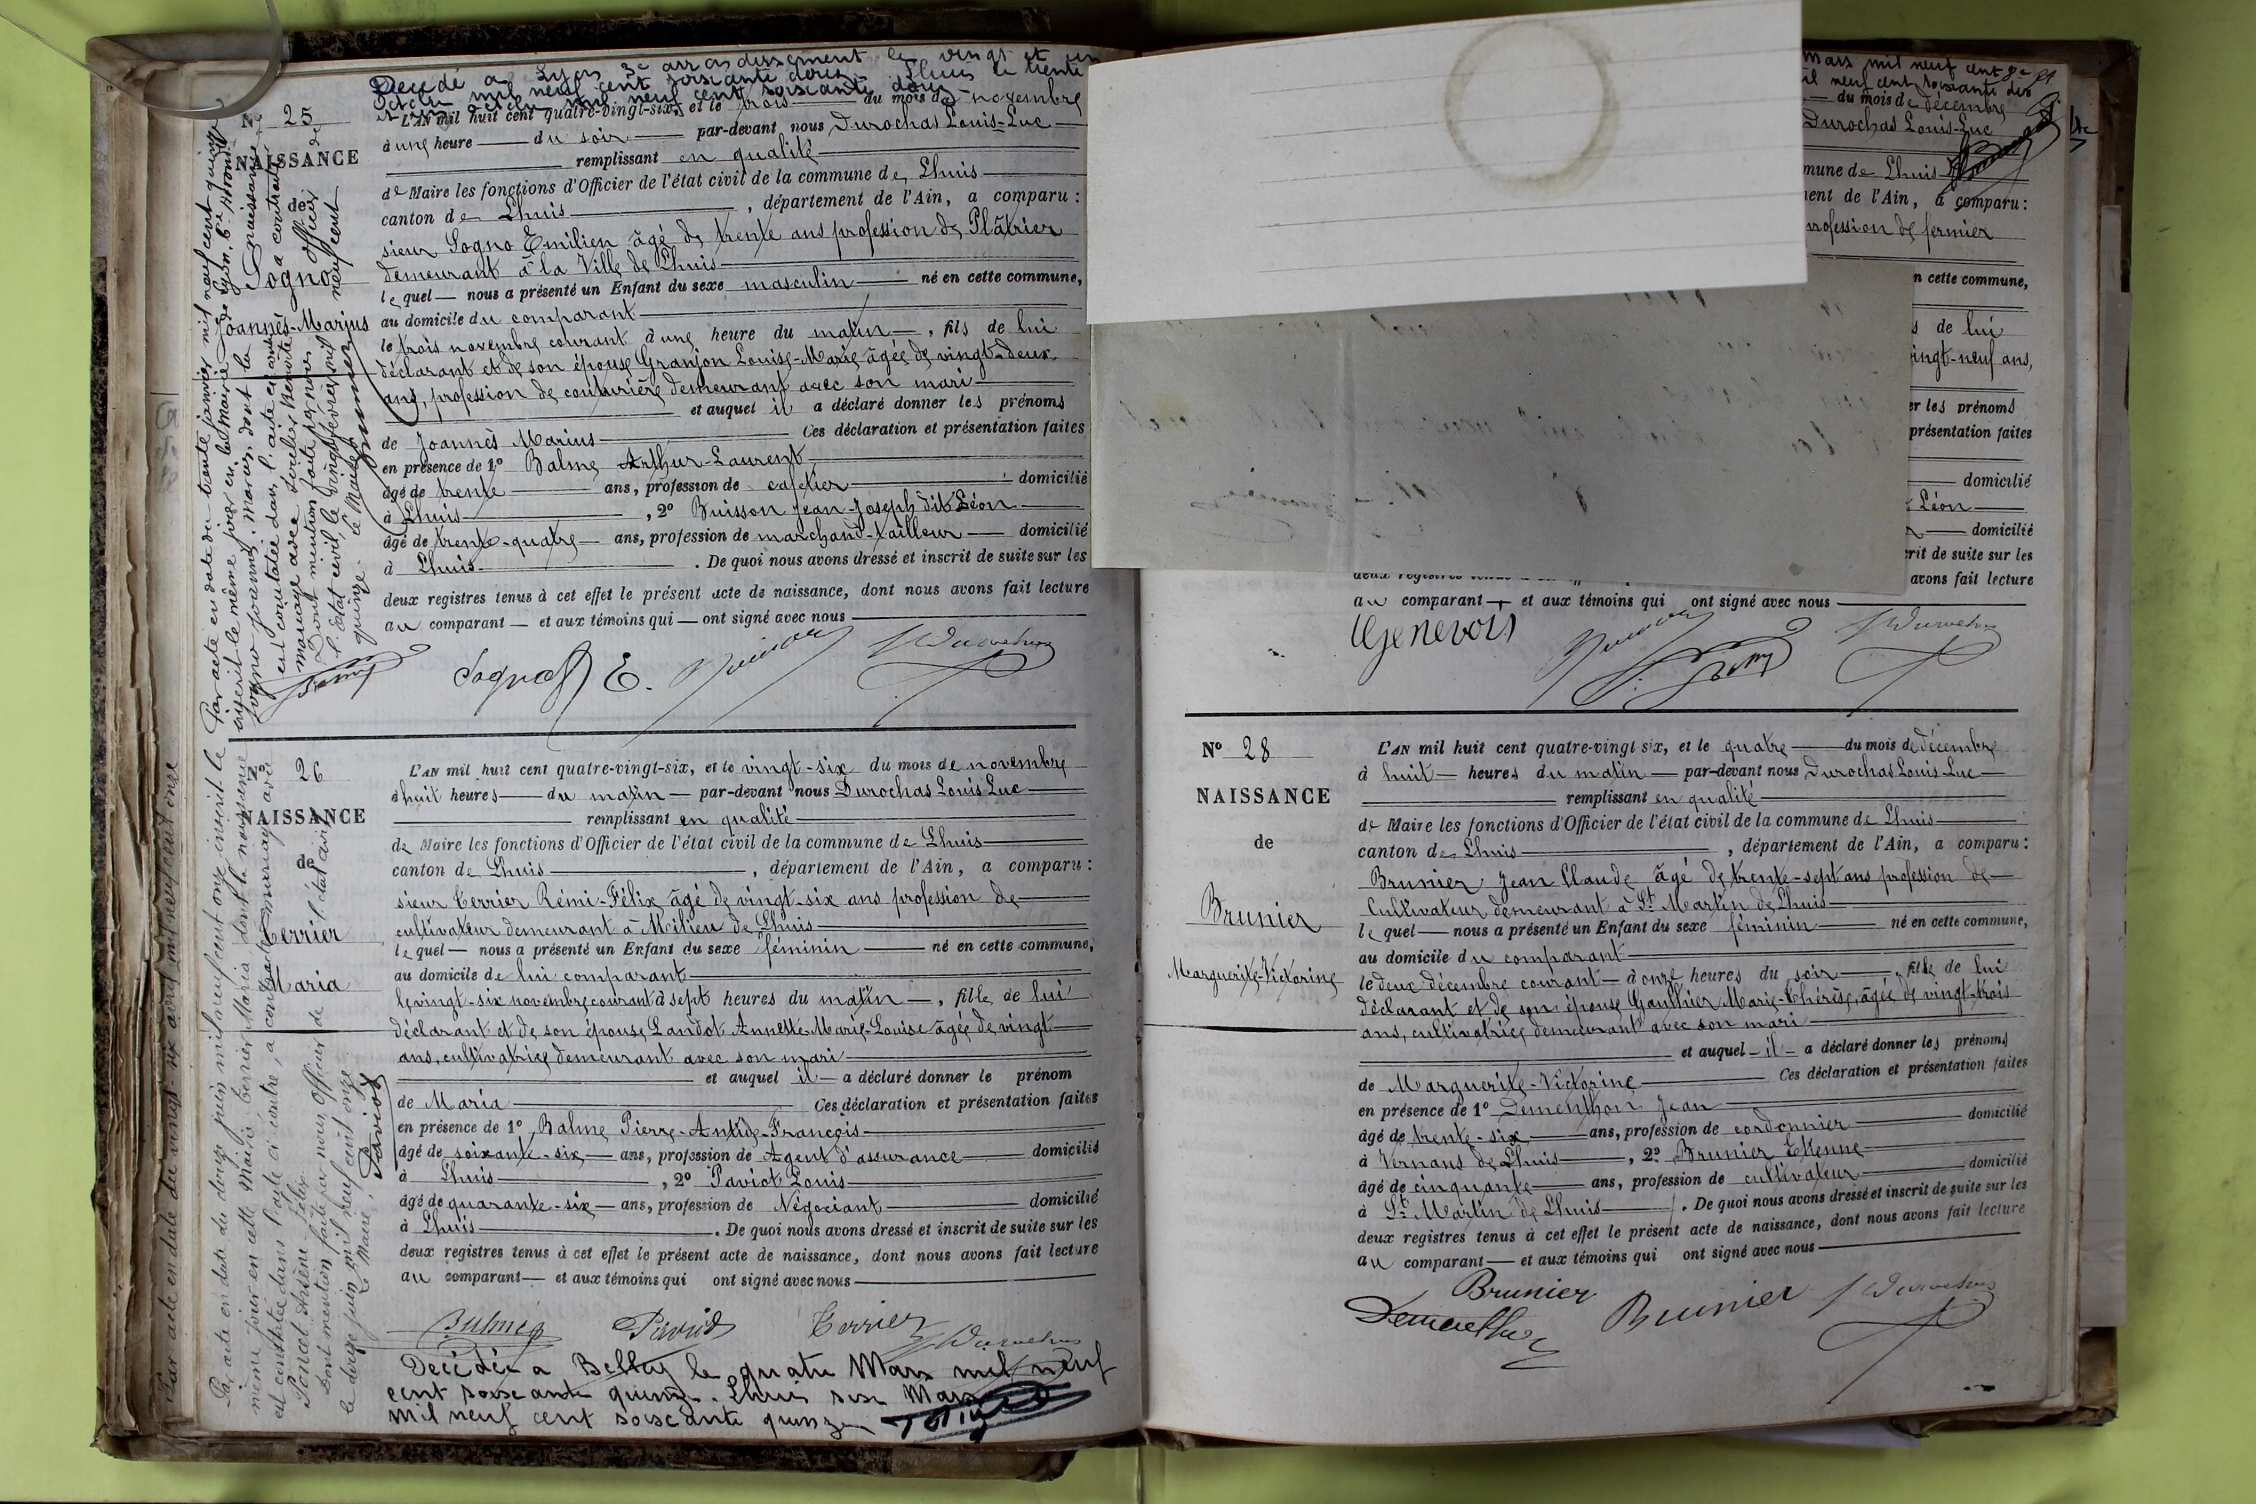 Decédé a Lyon 3e arrondissement le vingt et un
mil neuf cent soixante douze Lhuis le trente
mil neuf cent soixante douze
No 25
NAISSANCE
de
Sogno
Joannès-Marius
L'AN mil huit cent quatre-vingt-six, et le trois du mois de novembre
à une heure du soir par-devant nous Durochas Louis-Luc
remplissant en qualité
de Maire les fonctions d'Officier de l'état civil de la commune de Lhuis
canton de Lhuis, département de l'Ain, a comparu :
sieur Sogno Emilien âgé de trente ans profession de Plâtrier
demeurant à la Ville de Lhuis
lequel nous a présenté un Enfant du sexe masculin né en cette commune,
au domicile du comparant
le trois novembre courant à une heure du matin, fils de lui
déclarant et de son épouse Granjon Louise-Marie âgée de vingt-deux
ans, profession de couturière demeurant avec son mari
et auquel il a déclaré donner les prénoms
de Joannès Marius Ces déclaration et présentation faites
en présence de 1o Balme Arthur-Laurent
âgé de trente ans, profession de cafetier domicilié
à Lhuis, 2o Buisson Jean-Joseph dit Léon
âgé de trente-quatre ans, profession de marchand-tailleur domicilié
à Lhuis. De quoi nous avons dressé et inscrit de suite sur les
deux registres tenus à cet effet le présent acte de naissance, dont nous avons fait lecture
au comparant et aux témoins qui ont signé avec nous
Sogno E.
Par acte en date du trente janvier mil neuf cent quinze
inscrit le même jour en la Mairie de Lyon, 6e arrondt
Sogno Joannès Marius, dont la naissance
est constatée dans l'acte ci-contre, a contracté
mariage avec
Dont mention faite par nous officier de
l'état civil, le vingt février mil neuf cent
quinze. Le Maire,
No 26
NAISSANCE
de
Terrier
Maria
L'AN mil huit cent quatre-vingt-six, et le vingt-six du mois de novembre
à huit heures du matin par-devant nous Durochas Louis Luc
remplissant en qualité
de Maire les fonctions d'Officier de l'état civil de la commune de Lhuis
canton de Lhuis, département de l'Ain, a comparu :
sieur Terrier Rémi-Félix âgé de vingt-six ans profession de
cultivateur demeurant à Milieu de Lhuis
lequel nous a présenté un Enfant du sexe féminin né en cette commune,
au domicile de lui comparant
le vingt-six novembre courant à sept heures du matin, fille de lui
déclarant et de son épouse Landot Annette-Marie-Louise âgée de vingt
ans, cultivatrice demeurant avec son mari
et auquel il a déclaré donner le prénom
de Maria Ces déclaration et présentation faites
en présence de 1o Balme Pierre-Antide-François
âgé de soixante-six ans, profession de Agent d'assurance domicilié
à Lhuis, 2o Paviot Louis
âgé de quarante-six ans, profession de Négociant domicilié
à Lhuis. De quoi nous avons dressé et inscrit de suite sur les
deux registres tenus à cet effet le présent acte de naissance, dont nous avons fait lecture
au comparant et aux témoins qui ont signé avec nous
Balme Paviot Terrier
Decédée a Belley le quatre Mars mil neuf
cent soixante quinze. Lhuis six Mars
mil neuf cent soixante quinze
Par acte en date du vingt-six avril mil neuf cent onze
Par acte en date du douze juin mil neuf cent onze inscrit le
même jour en cette Mairie Terrier Maria dont la naissance
est constatée dans l'acte ci-contre, a contracté mariage avec
Dont mention faite par nous, Officier de l'état civil
le douze juin mil neuf cent onze
Le Maire, Paviot
Mars mil neuf cent
mil neuf cent soixante dix
du mois de décembre
Durochas Louis-Luc
mune de Lhuis
ment de l'Ain, a comparu :
profession de fermier
n cette commune,
s de lui
vingt-neuf ans,
er les prénoms
présentation faites
domicilié
Léon
domicilié
crit de suite sur les
avons fait lecture
au comparant et aux témoins qui ont signé avec nous
Genevois
No 28
NAISSANCE
de
Brunier
Marguerite-Victorine
L'AN mil huit cent quatre-vingt six, et le quatre du mois de décembre
à huit heures du matin par-devant nous Durochas Louis-Luc
remplissant en qualité
de Maire les fonctions d'Officier de l'état civil de la commune de Lhuis
canton de Lhuis, département de l'Ain, a comparu :
Brunier Jean Claude âgé de trente-sept ans profession de
Cultivateur demeurant à St Martin de Lhuis
lequel nous a présenté un Enfant du sexe féminin né en cette commune,
au domicile du comparant
le deux décembre courant à onze heures du soir, fille de lui
déclarant et de son épouse Gauthier Marie-Thérèse, âgée de vingt-trois
ans, cultivatrice demeurant avec son mari
et auquel il a déclaré donner les prénoms
de Marguerite-Victorine Ces déclaration et présentation faites
en présence de 1o Dementhon Jean
âgé de trente-six ans, profession de cordonnier domicilié
à Vernans de Lhuis, 2o Brunier Etienne
âgé de cinquante ans, profession de cultivateur domicilié
à St Martin de Lhuis. De quoi nous avons dressé et inscrit de suite sur les
deux registres tenus à cet effet le présent acte de naissance, dont nous avons fait lecture
au comparant et aux témoins qui ont signé avec nous
Brunier
Brunier